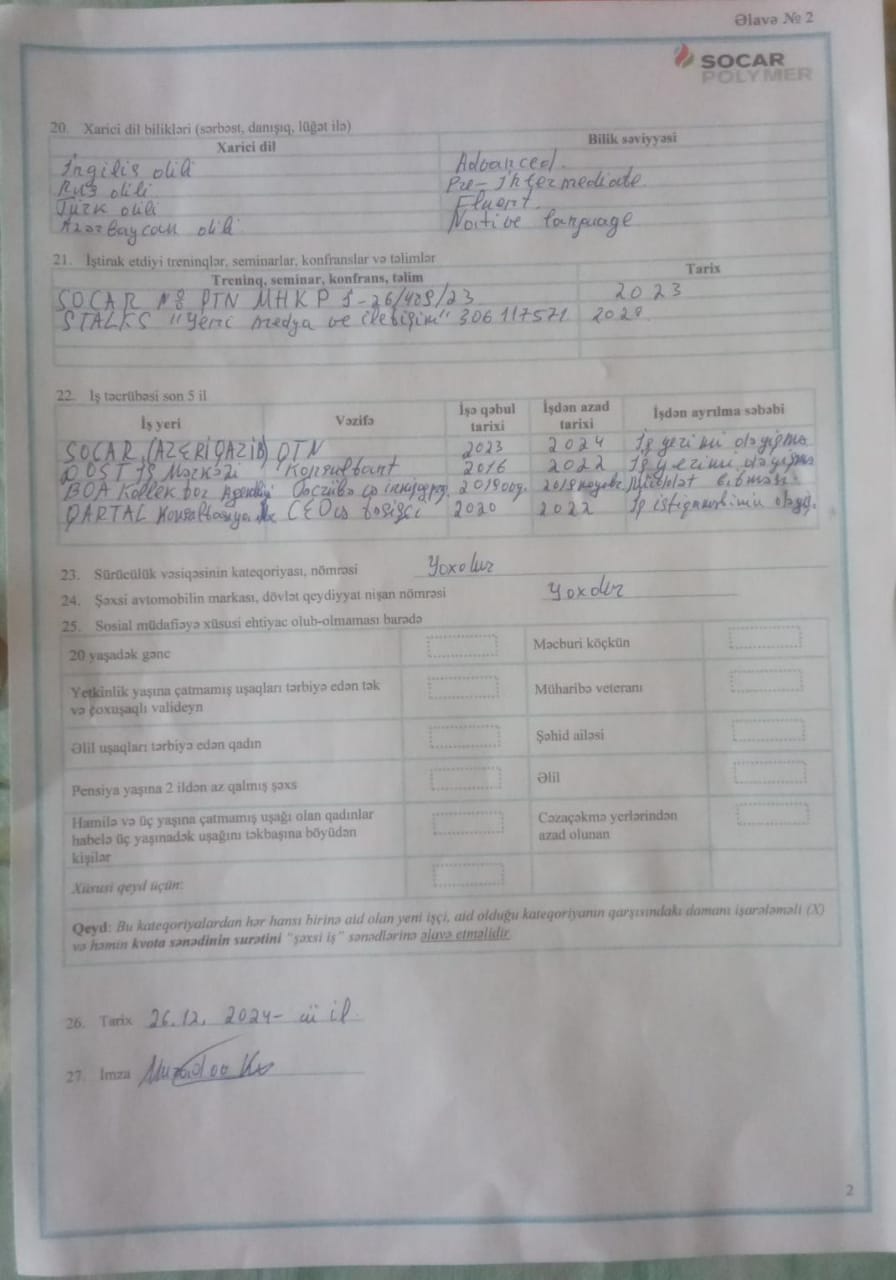 Əlavə № 2
SOCAR
POLYMER
20. Xarici dil bilikləri (sərbəst, danışıq, lüğət ilə)
Xarici dil Bilik səviyyəsi
İngilis dili Advanced
Rus dili Pre-intermediate
Türk dili Fluent
Azərbaycan dili Native language
21. İştirak etdiyi treninqlər, seminarlar, konfranslar və təlimlər
Treninq, seminar, konfrans, təlim Tarix
SOCAR № PTN MHKP 2023
STALKS "Yeni medya ve iletişim" 306117571
22. İş təcrübəsi son 5 il
İş yeri Vəzifə İşə qəbul tarixi İşdən azad tarixi İşdən ayrılma səbəbi
SOCAR (AZERİQAZİB) 2023 2024 İş yerimi dəyişmə
DOST İş Mərkəzi Konsultant 2016 2022 İş yerimi dəyişmə
BOA
QARTAL 2020 2022 İş
23. Sürücülük vəsiqəsinin kateqoriyası, nömrəsi Yoxdur
24. Şəxsi avtomobilin markası, dövlət qeydiyyat nişan nömrəsi Yoxdur
25. Sosial müdafiəyə xüsusi ehtiyac olub-olmaması barədə
20 yaşadək gənc Məcburi köçkün
Yetkinlik yaşına çatmamış uşaqları tərbiyə edən tək
və çoxuşaqlı valideyn Müharibə veteranı
Əlil uşaqları tərbiyə edən qadın Şəhid ailəsi
Pensiya yaşına 2 ildən az qalmış şəxs Əlil
Hamilə və üç yaşına çatmamış uşağı olan qadınlar
habelə üç yaşınadək uşağını təkbaşına böyüdən
kişilər
Cəzaçəkmə yerlərindən
azad olunan
Xüsusi qeyd üçün:
Qeyd: Bu kateqoriyalardan hər hansı birinə aid olan yeni işçi, aid olduğu kateqoriyanın qarşısındakı damanı işarələməli (X)
və həmin kvota sənədinin surətini "şəxsi iş" sənədlərinə əlavə etməlidir.
26. Tarix 26.12. 2024-cü il
27. İmza
2